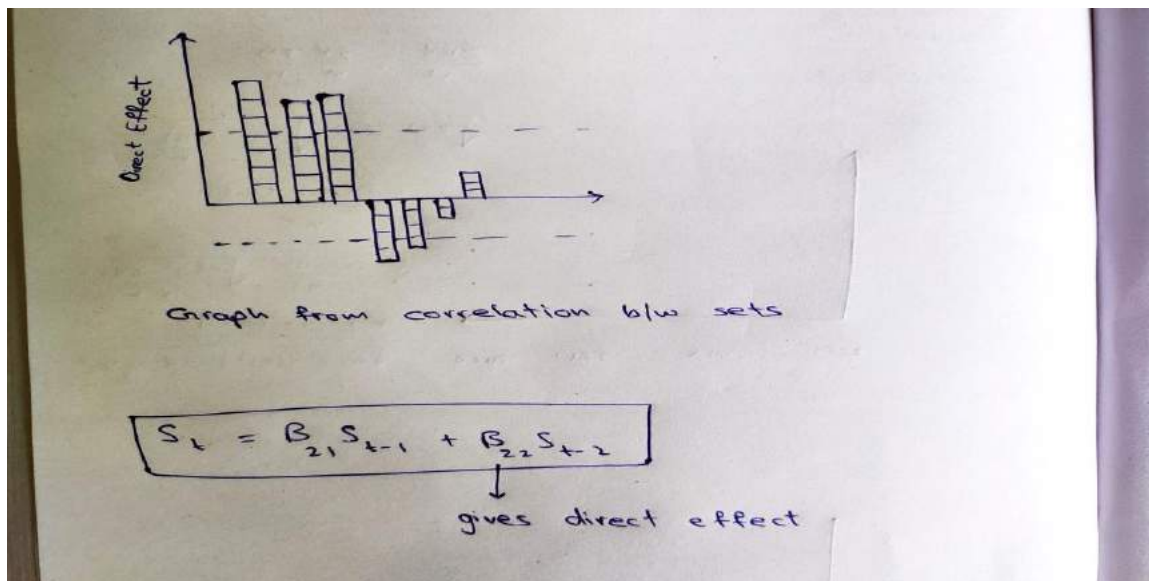 Direct Effect
Graph from correlation b/w sets
S_t = β_21 S_t-1 + β_22 S_t-2
gives direct effect